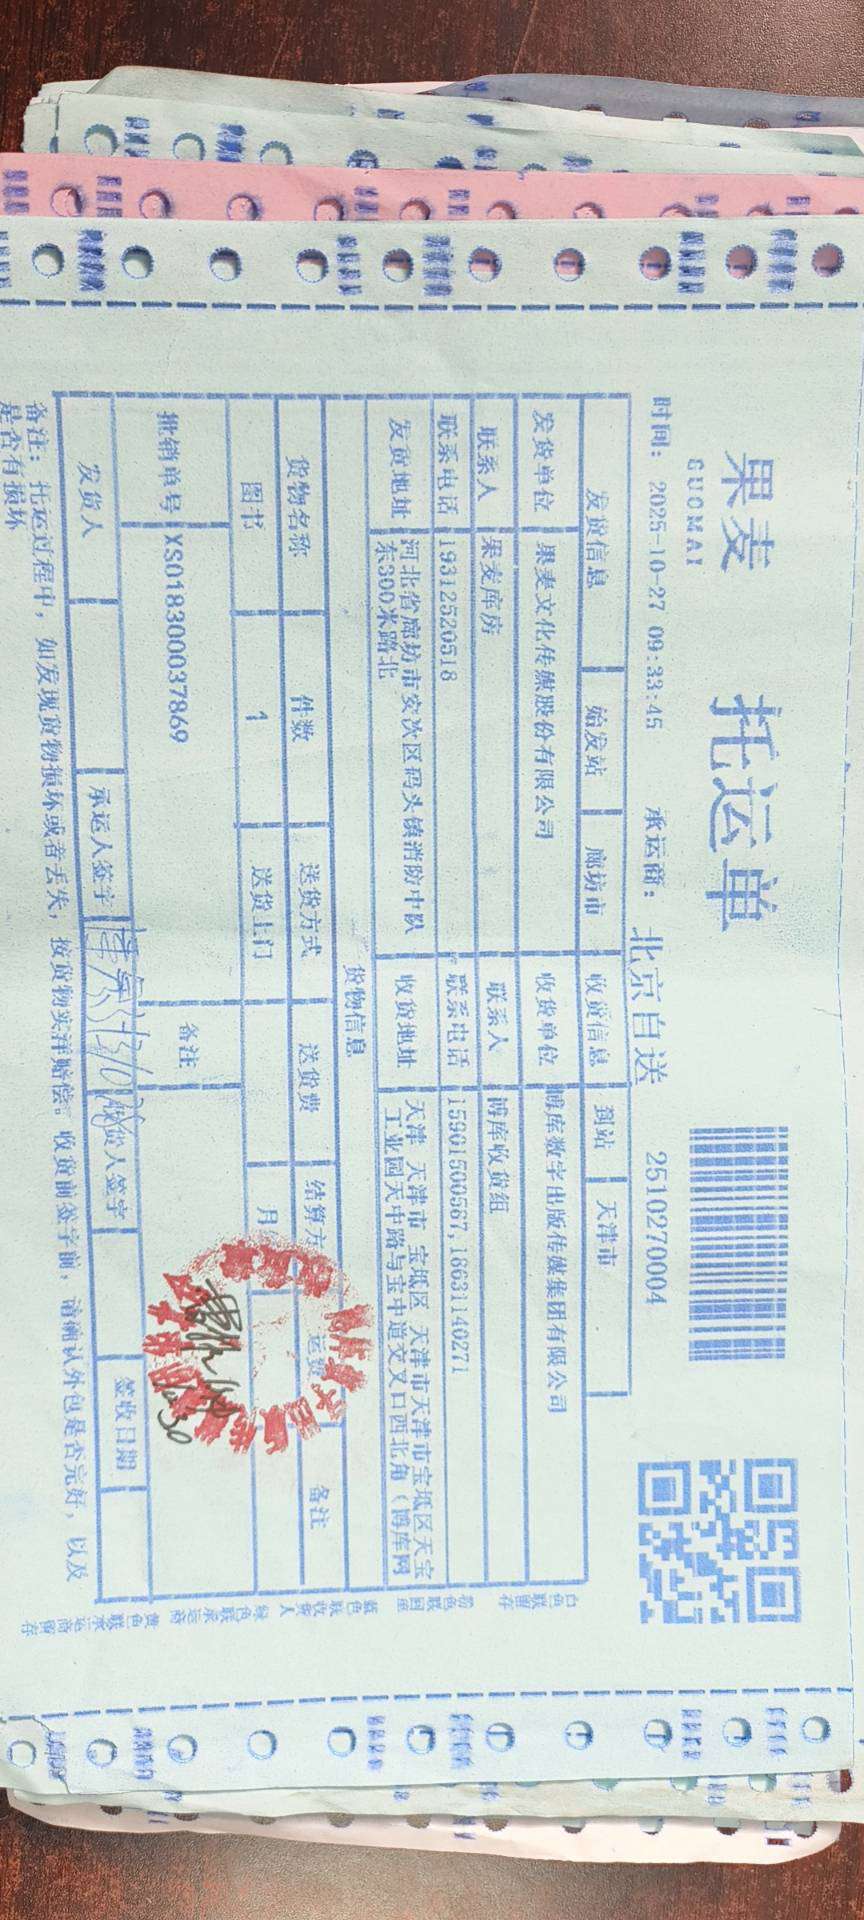 果麦 托运单
GUOMAI
时间: 2025-10-27 09:33:45 承运商: 北京自送 2510270004
发货信息 始发站 廊坊市 收货信息 到站 天津市
发货单位 果麦文化传媒股份有限公司 收货单位 博库数字出版传媒集团有限公司
联系人 果麦库房 联系人 博库收货组
联系电话 19312520518 联系电话 15901500587,18631140271
发货地址 河北省廊坊市安次区码头镇消防中队东300米路北 收货地址 天津 天津市 宝坻区 天津市天津市宝坻区天宝工业园天中路与宝中道交叉口西北角（博库网
货物信息
货物名称 件数 送货方式 送货费 结算方 运费 备注
图书 1 送货上门 月
批销单号 XS018300037869 备注
发货人 承运人签字 收货人签字 签收日期
备注: 托运过程中, 如发现货物损坏或者丢失, 按货物实洋赔偿。收货前签字前, 请确认外包是否完好, 以及
是否有损坏
白色联留存
粉色联回单
蓝色联收货人
绿色联承运商
黄色联承运商留存
10.30